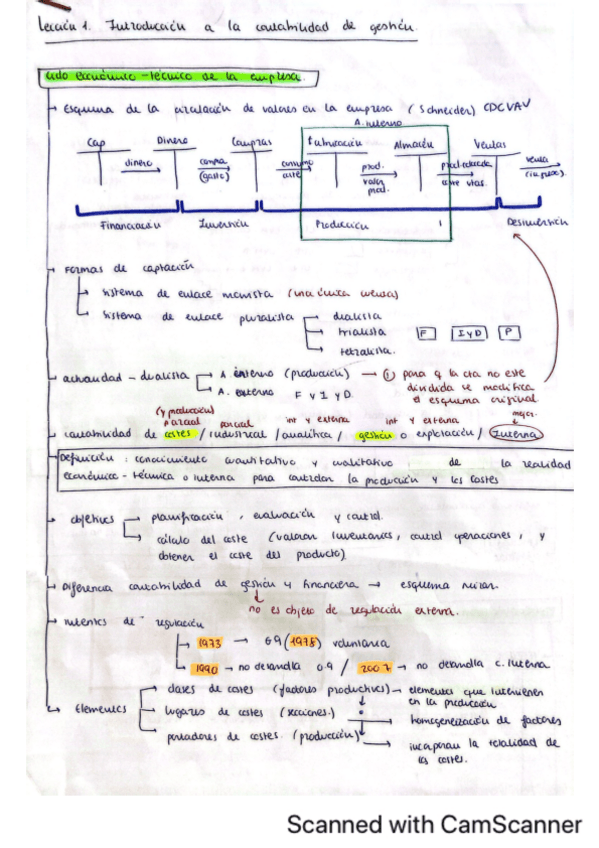 Lección 1. Introducción a la contabilidad de gestión.
ciclo económico-técnico de la empresa.
Esquema de la circulación de valores en la empresa (Schneider) CDCVAV
A. interno
Cap Dinero Compras Fabricación Almacén Ventas
dinero compra (gasto) consumo coste prod. valor prod. prod. coste vtas. venta
Financiación Inversión Producción Desinversión
Formas de captación
sistema de enlace monista (una única)
sistema de enlace pluralista dualista
trialista F I y D P
tetralista.
actualidad - dualista A interno (producción) → ① para q la cta no este
A. externo F y I y D dividida se modifica
el esquema original
(y producción) parcial parcial int y externa int y externa mejor.
contabilidad de costes / industrial / analítica / gestión o explotación / Interna
Definición: conocimiento cuantitativo y cualitativo de la realidad
económico-técnica o interna para controlar la producción y los costes
objetivos planificación, evaluación y control.
cálculo del coste (valorar inventarios, control operaciones, y
obtener el coste del producto)
Diferencia contabilidad de gestión y financiera → esquema mirar.
no es objeto de regulación externa.
intentos de regulación
1973 → G9 (1978) voluntaria
1990 → no desarrolla G.9 / 2007 → no desarrolla c. Interna
Elementos clases de costes (factores productivos) → elementos que intervienen
en la producción
lugares de costes (secciones.) homogeneización de factores
portadores de costes. (producción) incorporan la totalidad de
los costes.
Scanned with CamScanner